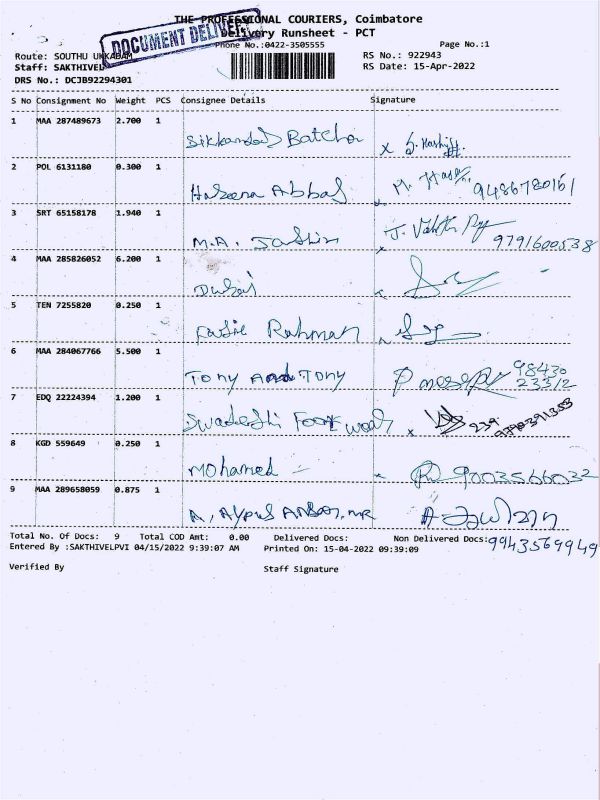 THE PROFESSIONAL COURIERS, Coimbatore
Delivery Runsheet - PCT
DOCUMENT DELIVERY
Phone No.:0422-3505555 Page No.:1
Route: SOUTHU UKKADAM RS No.: 922943
Staff: SAKTHIVEL RS Date: 15-Apr-2022
DRS No.: DCJB92294301
S No Consignment No Weight PCS Consignee Details Signature
1 MAA 287489673 2.700 1
Sikkandar Batcha x
2 POL 6131180 0.300 1
Haseena Abbas 9486780161
3 SRT 65158178 1.940 1
M.A. Jashin 9791600538
4 MAA 285826052 6.200 1
Dubai
5 TEN 7255820 0.250 1
Rahman
6 MAA 284067766 5.500 1
Tony And Tony 98430
23312
7 EDQ 22224394 1.200 1
Swadeshi Foot wear x
8 KGD 559649 0.250 1
Mohamed - 9003566032
9 MAA 289658059 0.875 1
Total No. Of Docs: 9 Total COD Amt: 0.00 Delivered Docs: Non Delivered Docs: 9943569949
Entered By :SAKTHIVELPVI 04/15/2022 9:39:07 AM Printed On: 15-04-2022 09:39:09
Verified By Staff Signature